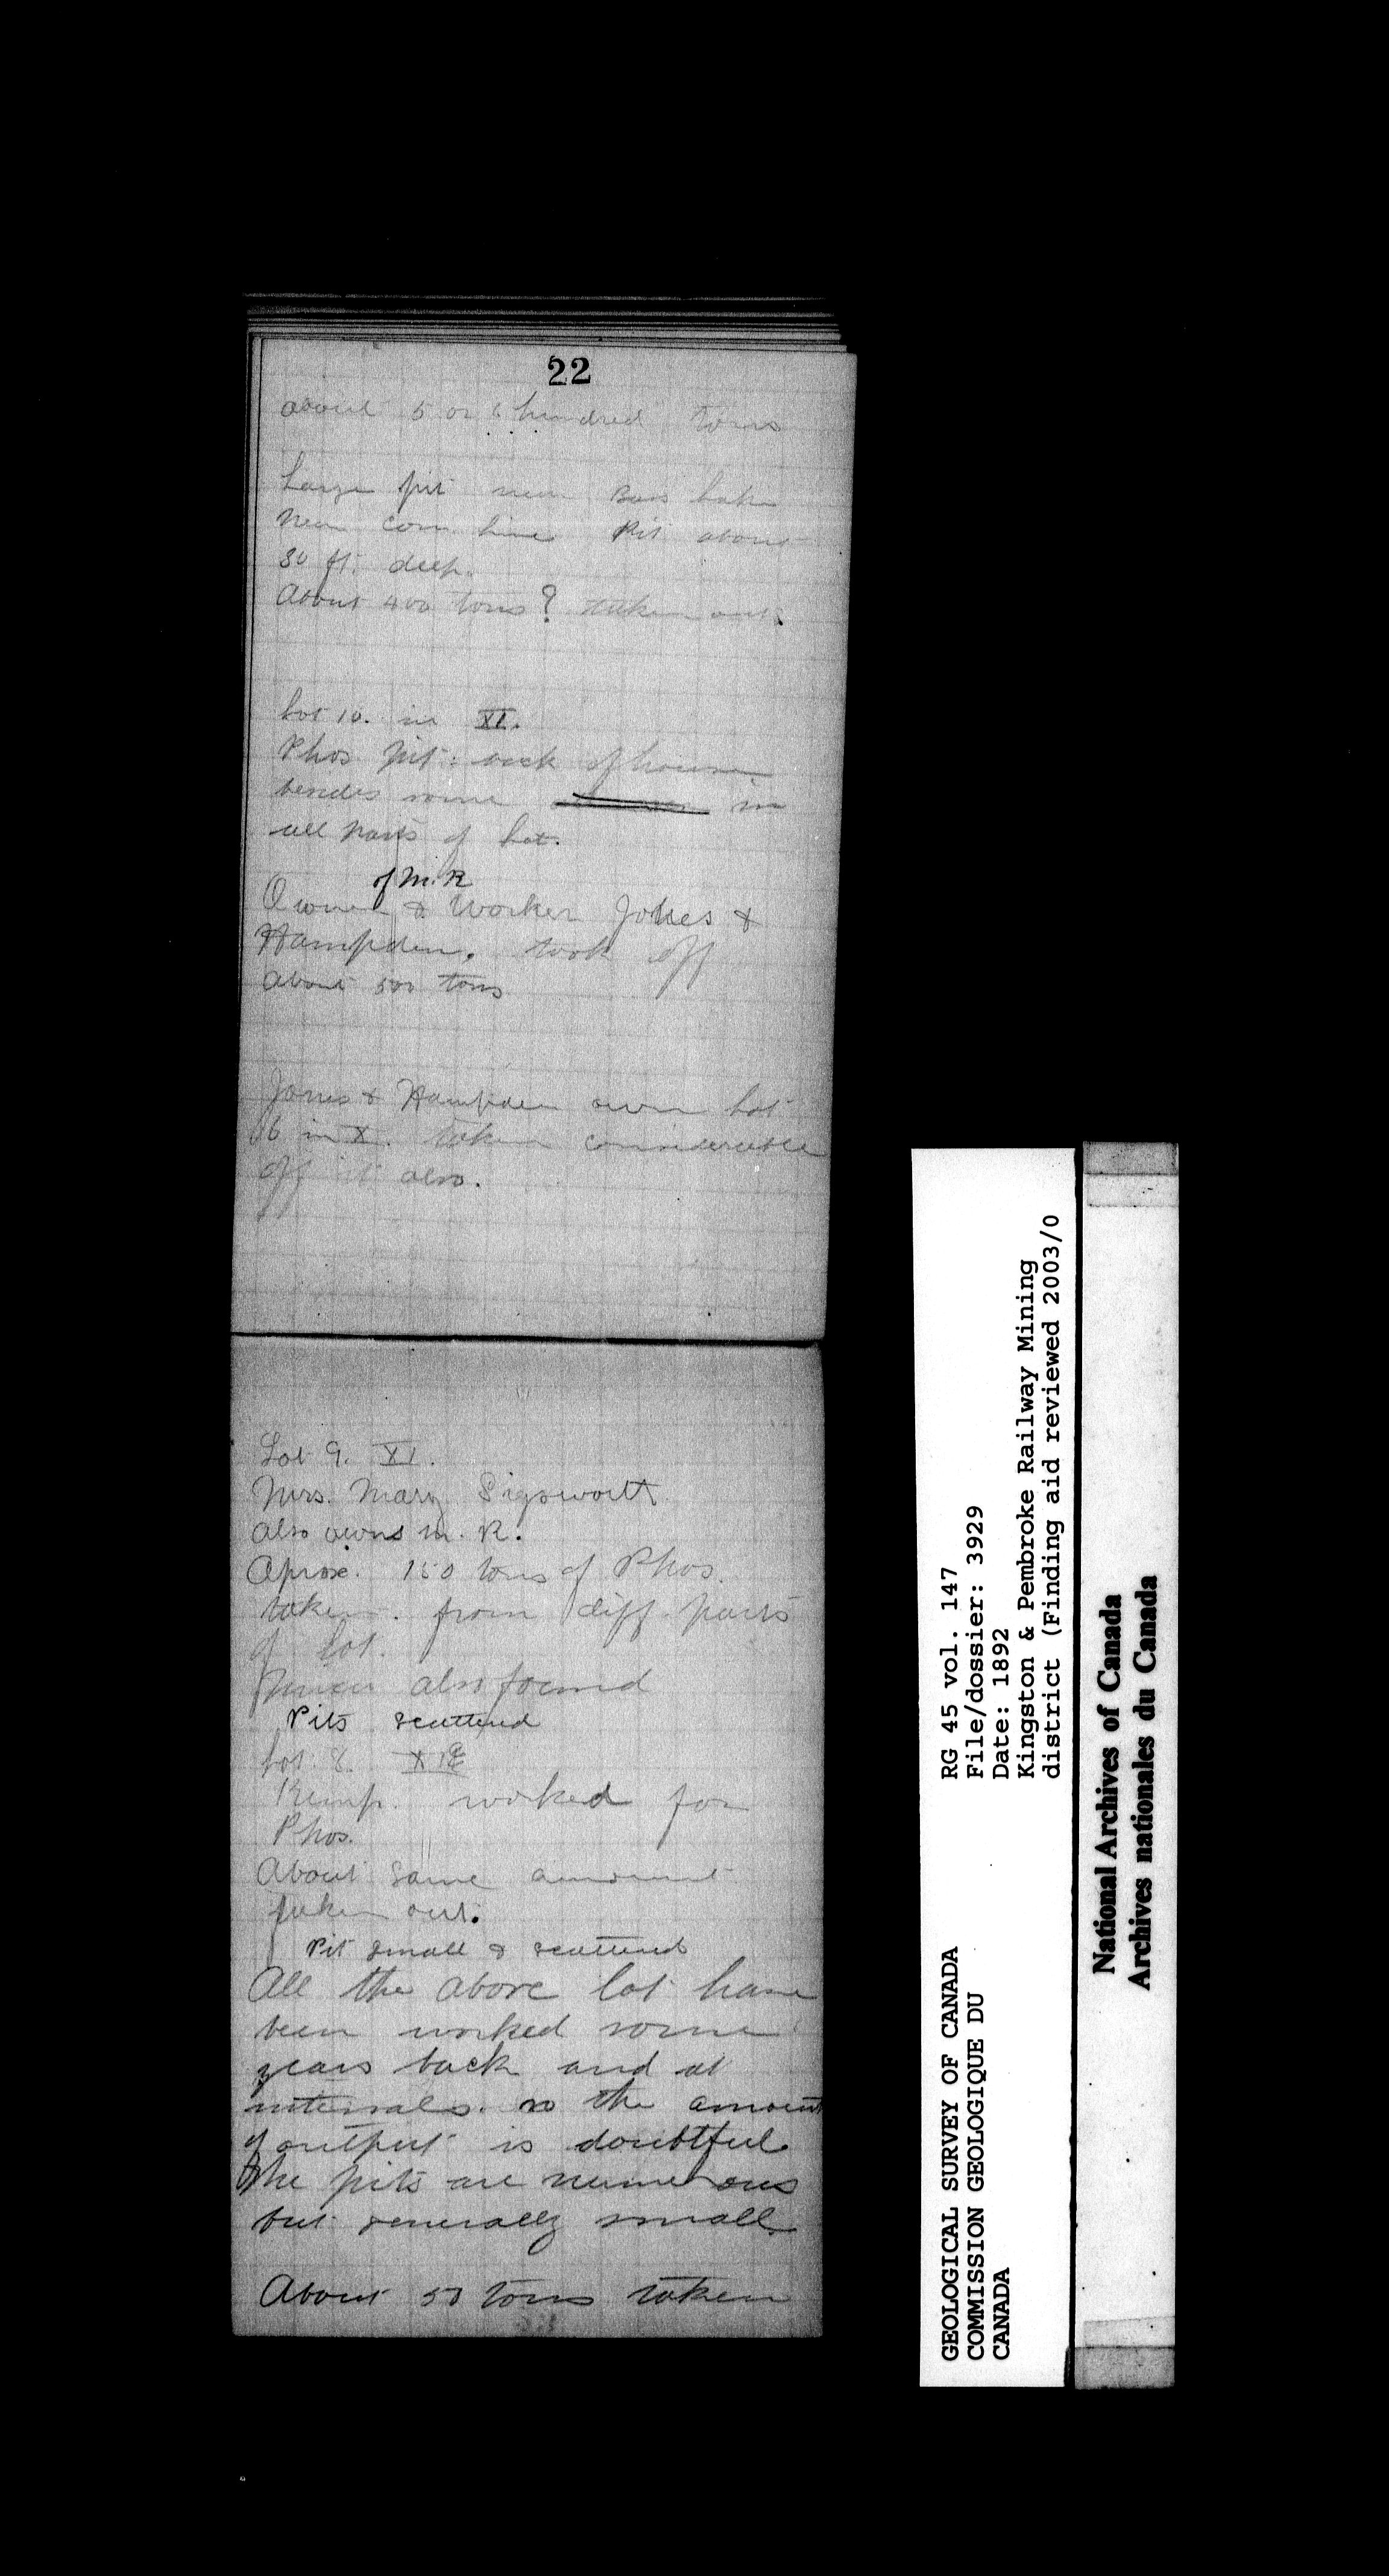 22
about 5 or 6 hundred tons
Large pit near Bass Lake
near con. line Pit about
80 ft. deep.
About 400 tons? taken out.
Lot 10. in XI.
Phos pit: back of house
besides some in
all parts of Lot.
of M.R
Owner & Worker Jones &
Hampden. took off
about 500 tons
Jones & Hampden own Lot
16 in X. taken considerable
off it also.
Lot 9. XI.
Mrs. Mary Sigsworth
also owns M. R.
Aprox. 150 tons of Phos.
taken. from diff. parts
of Lot.
also found
Pits scattered
Lot 8.
Kemp worked for
Phos.
About same amount
taken out.
Pit small & scattered
All the above lot have
been worked some
years back and at
intervals. so the amount
of output is doubtful
The pits are numerous
but generally small
About 50 tons taken
GEOLOGICAL SURVEY OF CANADA
COMMISSION GEOLOGIQUE DU
CANADA
RG 45 vol. 147
File/dossier: 3929
Date: 1892
Kingston & Pembroke Railway Mining
district (Finding aid reviewed 2003/0
National Archives of Canada
Archives nationales du Canada